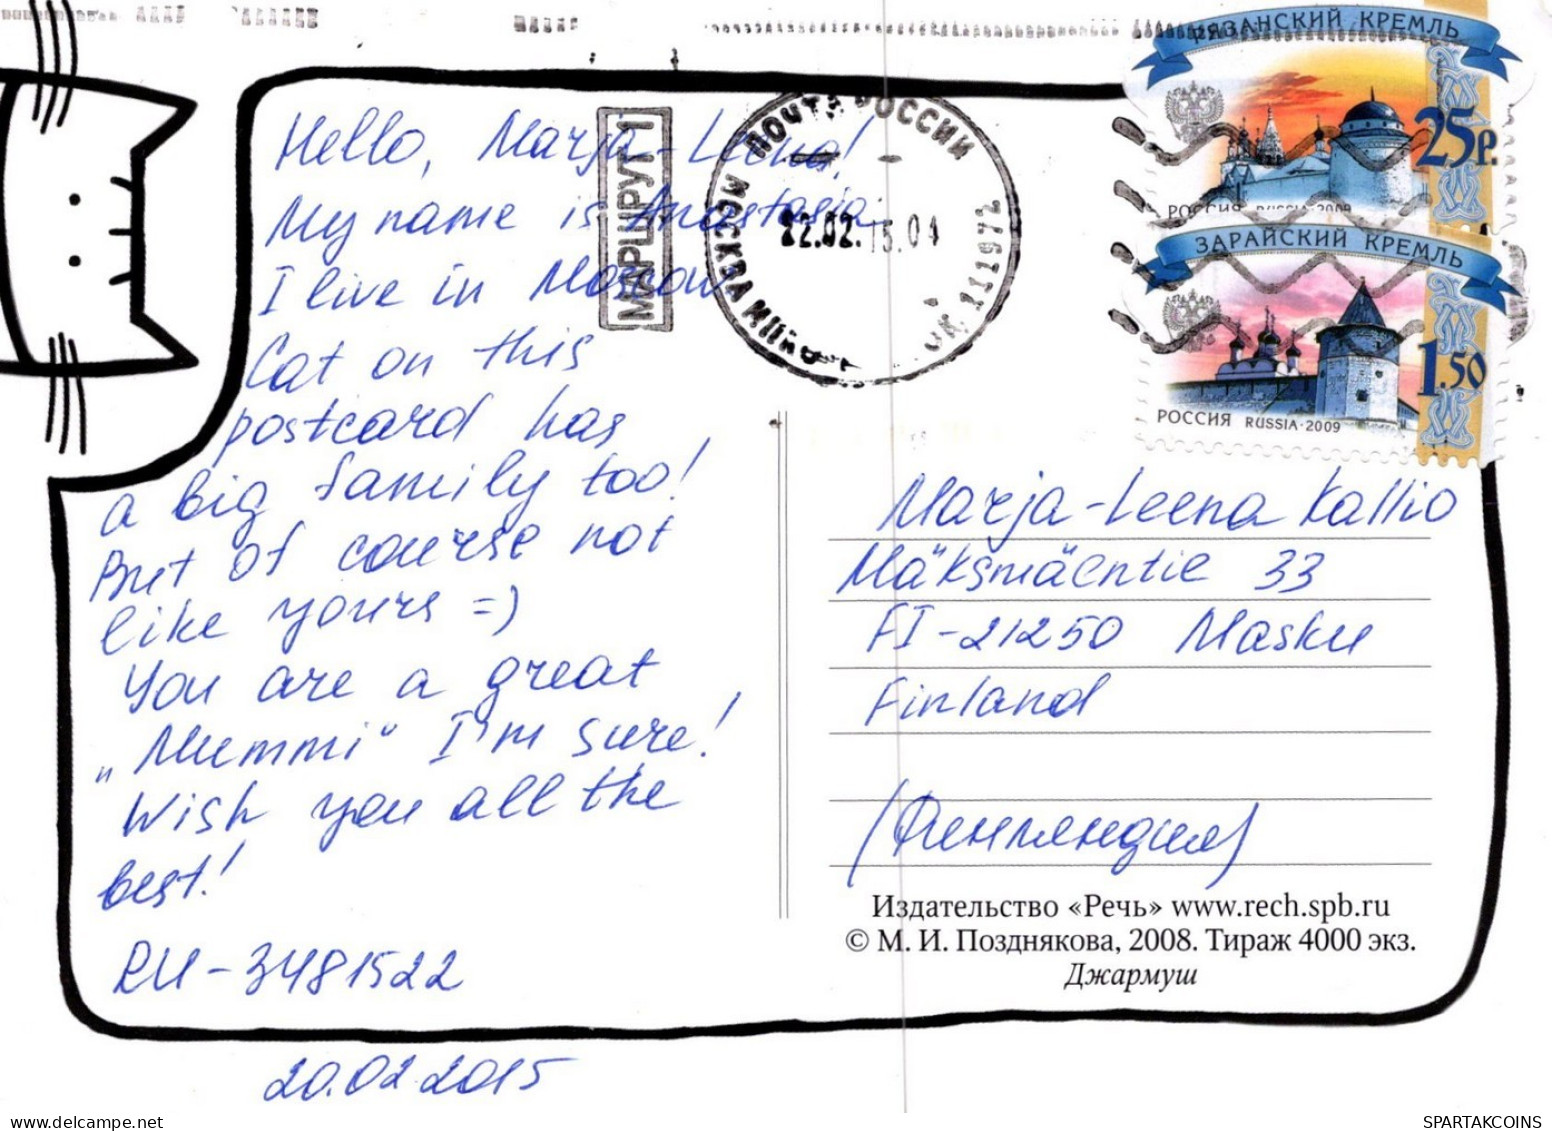 Hello, Marja-Leena!
My name is Anastasia
I live in Moscow
Cat on this
postcard has
a big family too!
But of course not
like yours =)
You are a great
„Mummi“ I'm sure!
Wish you all the
best!
RU-3481522
20.02.2015
МАРШРУТ 1
ПОЧТА РОССИИ
МОСКВА
22.02.15.04
111972
РЯЗАНСКИЙ КРЕМЛЬ
25р.
РОССИЯ RUSSIA·2009
ЗАРАЙСКИЙ КРЕМЛЬ
1.50
РОССИЯ RUSSIA·2009
Marja-Leena Kallio
Mäksmäentie 33
FI-21250 Masku
Finland
(Финляндия)
Издательство «Речь» www.rech.spb.ru
© М. И. Позднякова, 2008. Тираж 4000 экз.
Джармуш
SPARTAKCOINS